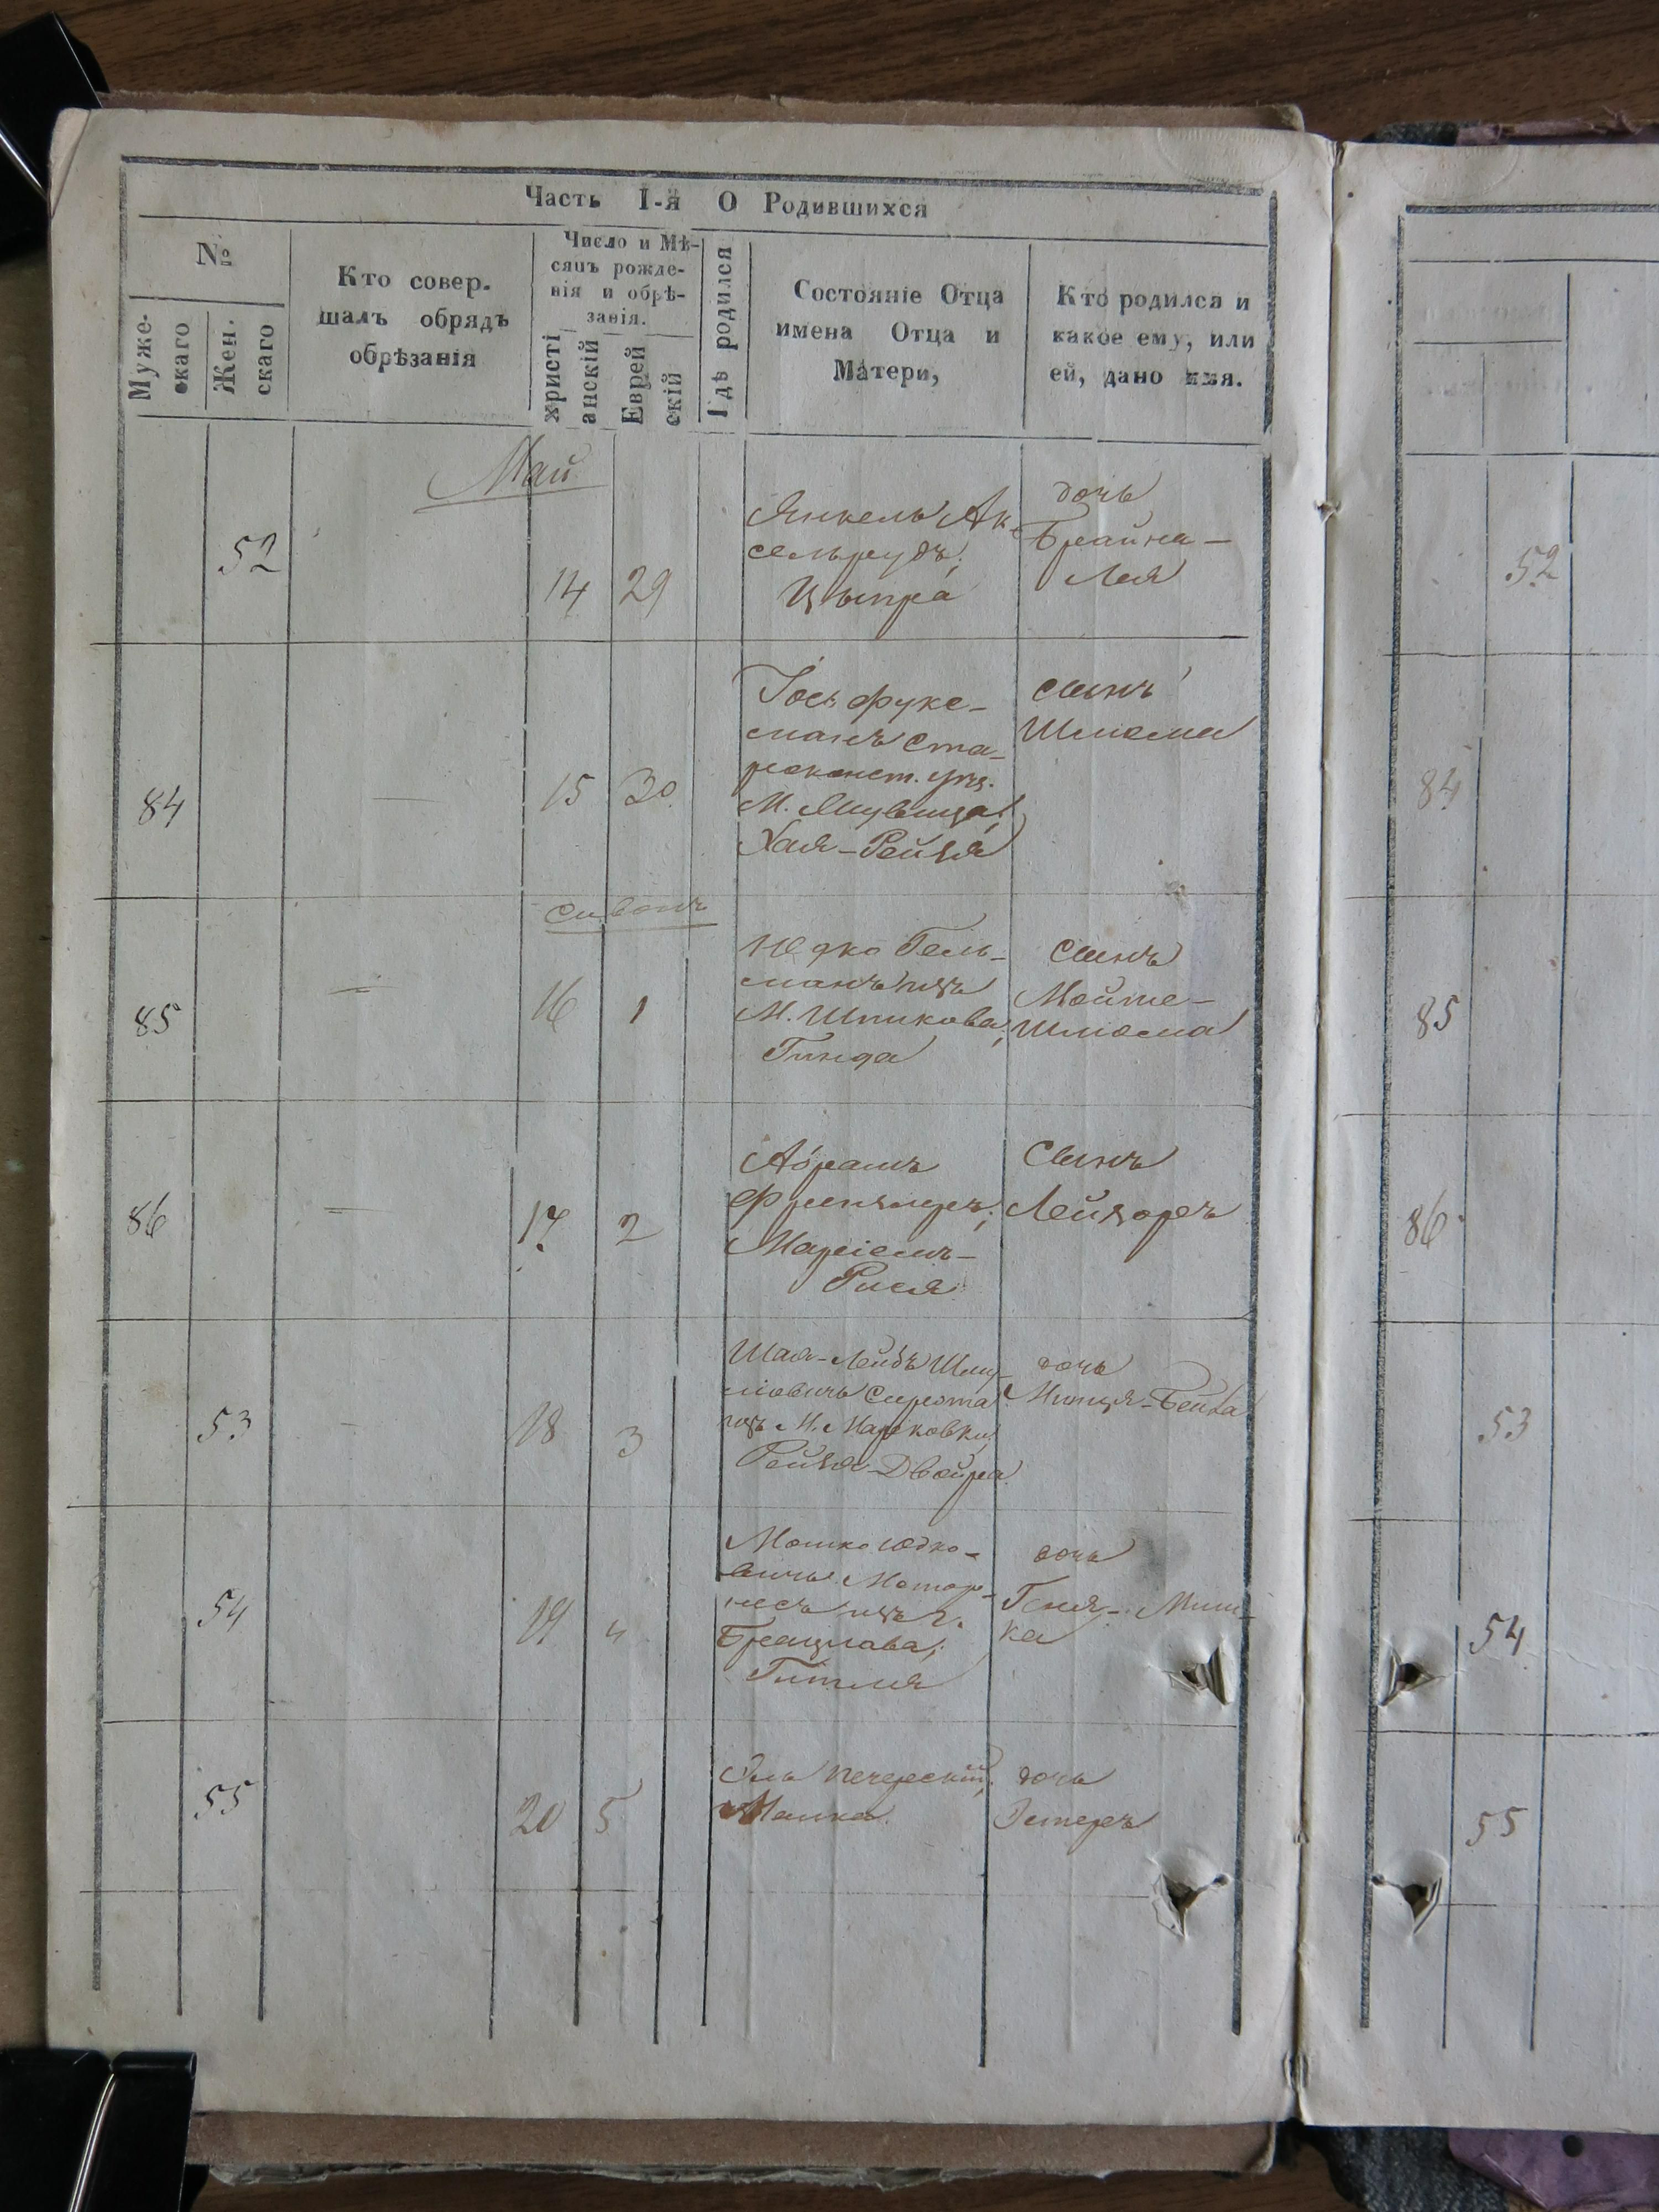 Часть I-я О Родившихся
№
Муже-
скаго
Жен.
скаго
Кто совер-
шалъ обрядъ
обрѣзанія
Число и Мѣ-
сяцъ рожде-
нія и обрѣ-
занія.
христі
анскій
Еврей
скій
Гдѣ родился
Состояніе Отца
имена Отца и
Матери,
Кто родился и
какое ему, или
ей, дано имя.
Май
52
14
29
Янкель Ак-
сельрудъ;
Цыпра
дочь
Брайна-
Лея
84
—
15
30
Іось Фукс-
манъ Ста-
роконст. уѣз.
М.
Хая-Рейзя
сынъ
Шлома
сиванъ
85
—
16
1
Юдко Гель-
манъ изъ
М. Шпикова;
Гинда
сынъ
Мойше-
Шлома
86
—
17
2
Абрамъ
Маріемъ-
Рися
сынъ
Лейзоръ
53
18
3
Шая-Лейбъ Шму-
ліовичъ Сирота
изъ М. Марковки;
Рейзя-Двойра
дочь
54
19
4
Мошко Юдко-
вичъ
изъ г.
Брацлава;
Гитля
дочь
Геня-
55
20
5
Печерскій;
Малка
дочь
Эстеръ
52
84
85
86
53
54
55